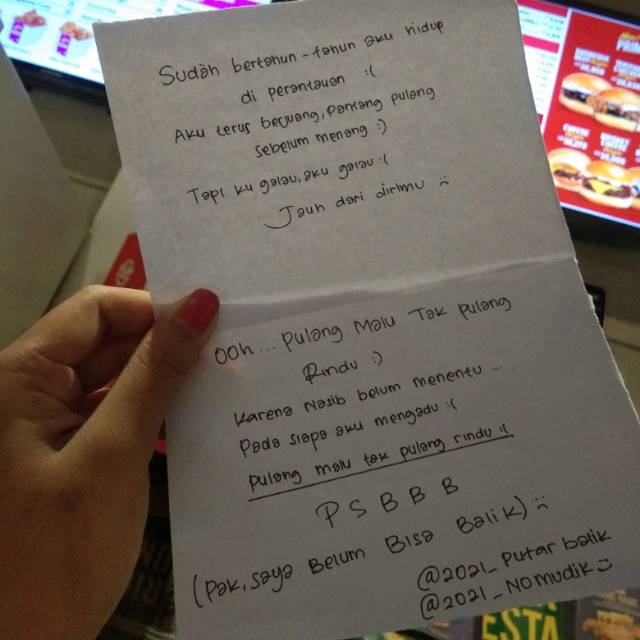 Sudah bertahun-tahun aku hidup
di perantauan :(
Aku terus berjuang, pantang pulang
sebelum menang :)
Tapi ku galau, aku galau :(
Jauh dari dirimu :(
Ooh... Pulang Malu Tak pulang
Rindu :)
Karena Nasib belum menentu ...
Pada siapa aku mengadu :(
pulang malu tak pulang rindu :(
P S B B B
(Pak, saya Belum Bisa Balik) :(
@2021_Putarbalik
@2021_Nomudik
ESTA